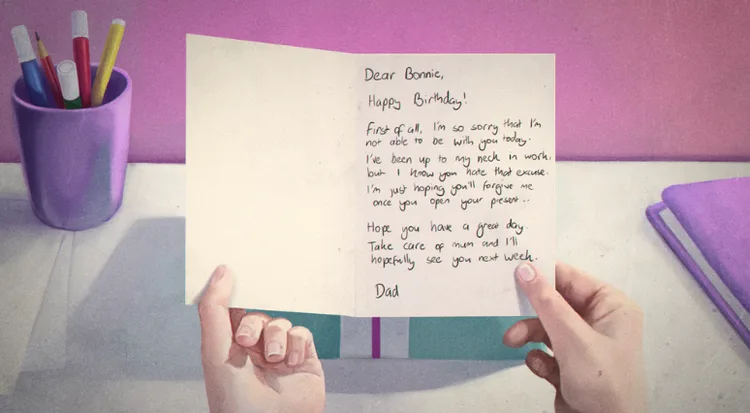 Dear Bonnie,
Happy Birthday!
First of all, I'm so sorry that I'm
not able to be with you today.
I've been up to my neck in work,
but I know you hate that excuse.
I'm just hoping you'll forgive me
once you open your present..
Hope you have a great day.
Take care of mum and I'll
hopefully see you next week.
Dad